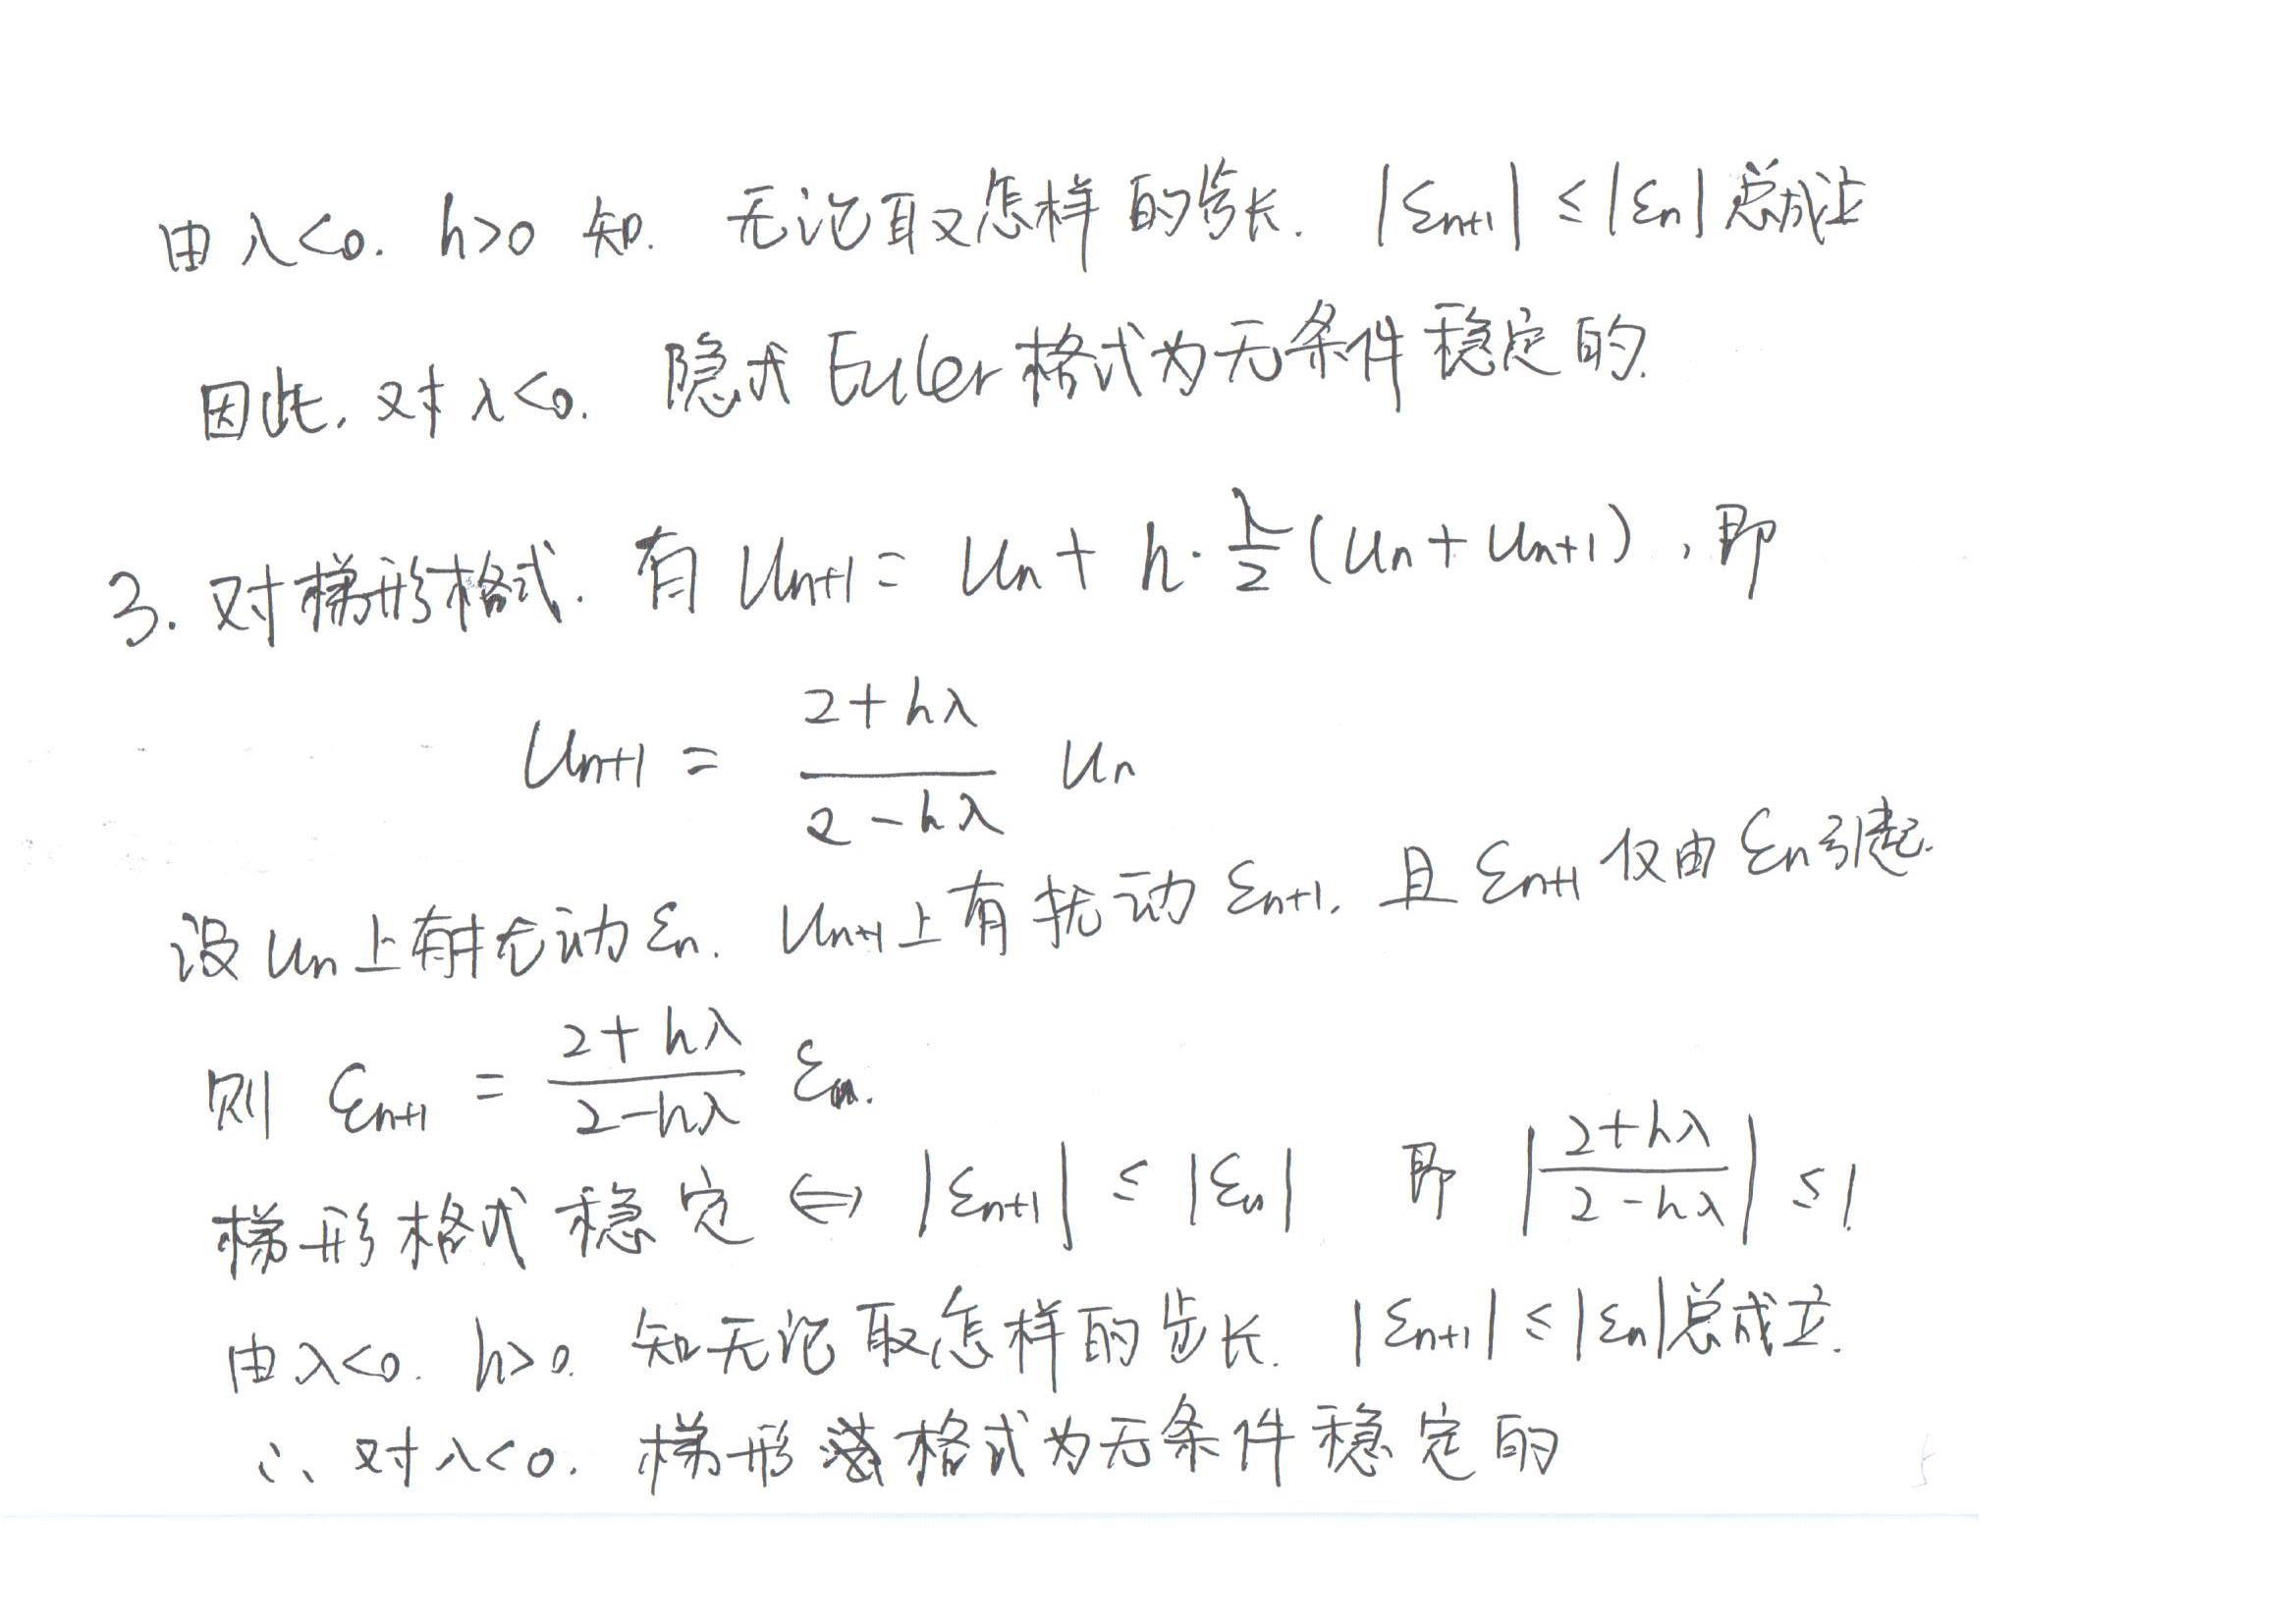 由λ<0. h>0 知. 无论取怎样的步长. |εn+1| ≤ |εn| 总成立
因此, 对λ<0. 隐式Euler格式为无条件稳定的.
3. 对梯形格式. 有 Un+1 = Un + h·λ/2(Un + Un+1), 即
Un+1 = (2+hλ)/(2-hλ) Un
设Un上有扰动εn. Un+1上有扰动εn+1, 且εn+1仅由εn引起.
则 εn+1 = (2+hλ)/(2-hλ) εn.
梯形格式稳定 ⇔ |εn+1| ≤ |εn| 即 |(2+hλ)/(2-hλ)| ≤ 1
由λ<0. h>0. 知无论取怎样的步长. |εn+1| ≤ |εn| 总成立.
∴ 对λ<0. 梯形格式为无条件稳定的